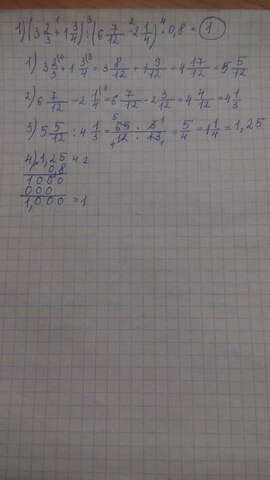 1) (3 2/3 + 1 3/4) : (6 7/12 - 2 1/4) · 0,8 = 1
1) 3 2/3 + 1 3/4 = 3 8/12 + 1 9/12 = 4 17/12 = 5 5/12
2) 6 7/12 - 2 1/4 = 6 7/12 - 2 3/12 = 4 4/12 = 4 1/3
3) 5 5/12 : 4 1/3 = 65/12 · 3/13 = 5/4 = 1 1/4 = 1,25
4) 1,25
0,8
1000
000
1,000 = 1